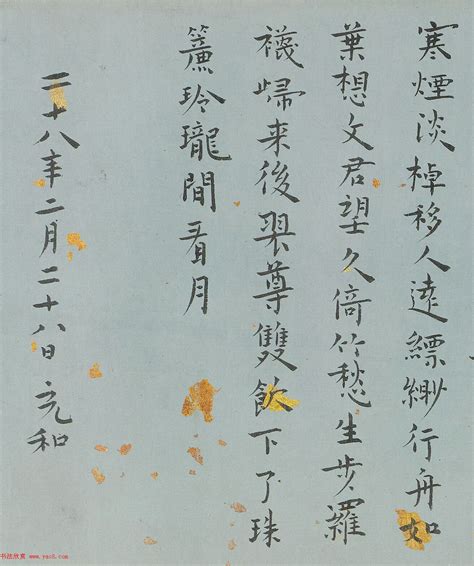 寒煙淡棹移人遠縹緲行舟如
葉想文君望久倚竹愁生步羅
襪歸来後翠尊雙飲下了珠
簾玲瓏間看月
二十八年二月二十八日充和
书法欣赏 www.yac8.com